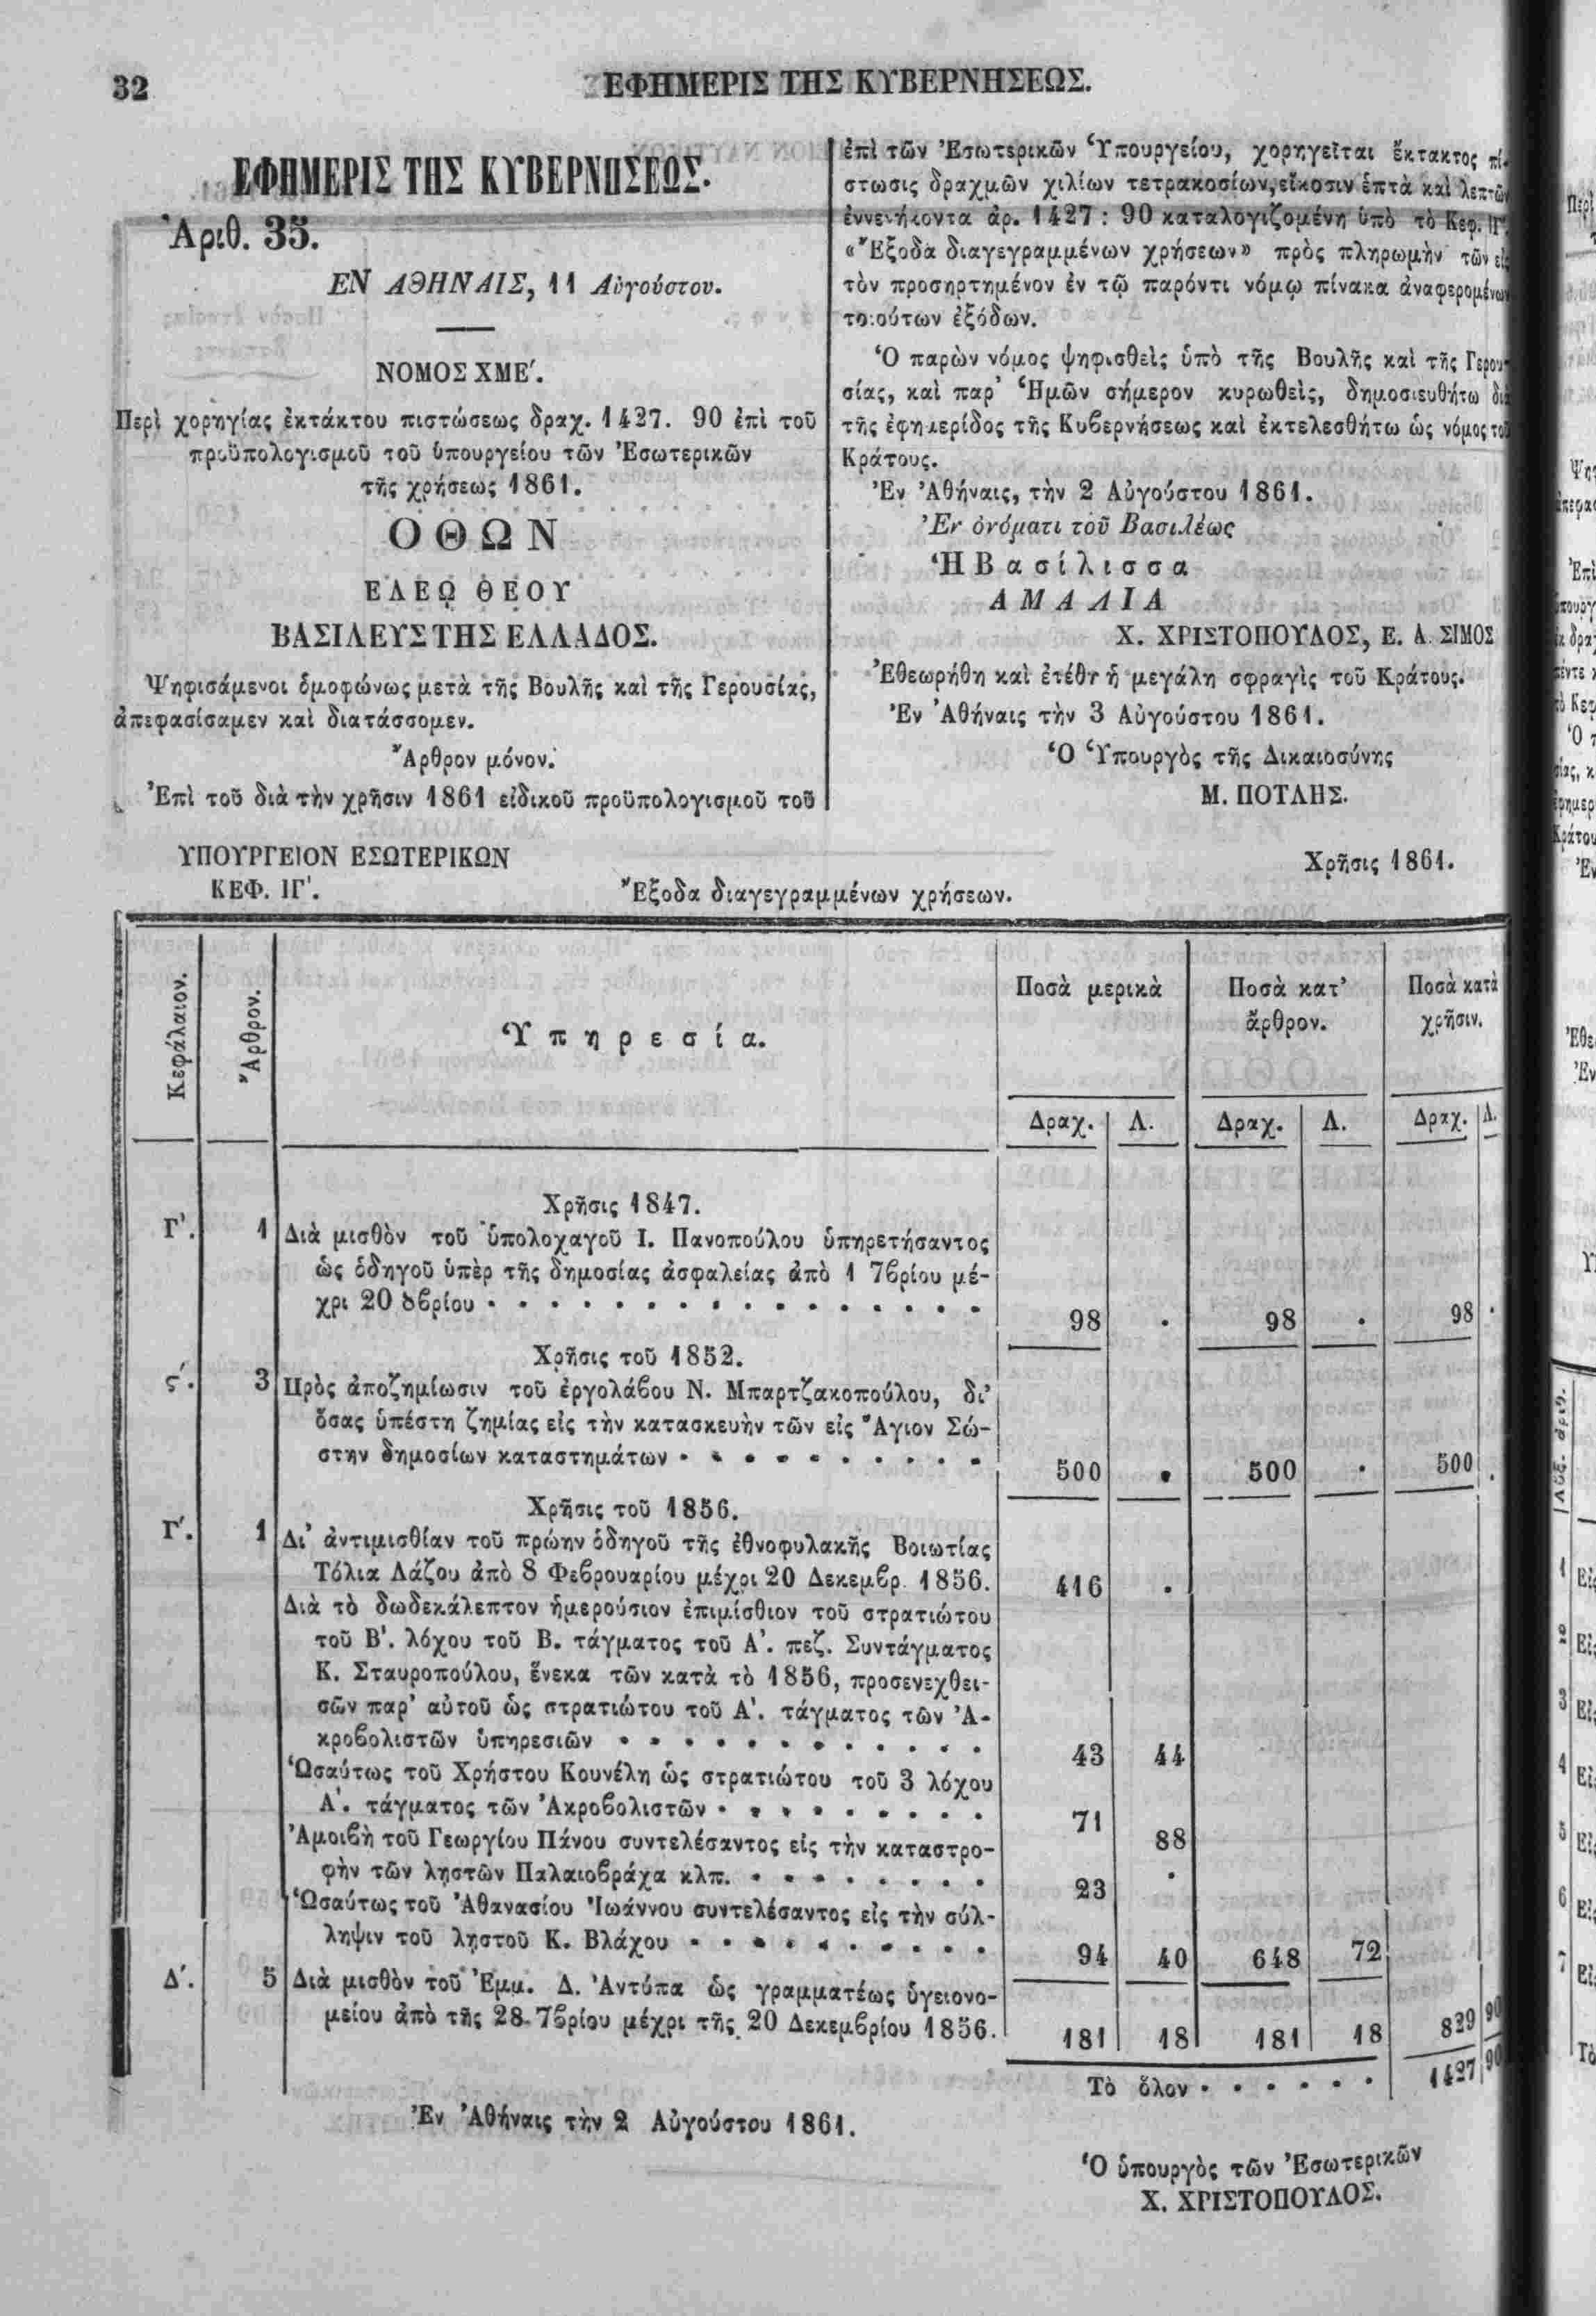 32
ΕΦΗΜΕΡΙΣ ΤΗΣ ΚΥΒΕΡΝΗΣΕΩΣ.
ΕΦΗΜΕΡΙΣ ΤΗΣ ΚΥΒΕΡΝΗΣΕΩΣ.
Ἀριθ. 35.
ΕΝ ΑΘΗΝΑΙΣ, 11 Αὐγούστου.
ΝΟΜΟΣ ΧΜΕ΄.
Περὶ χορηγίας ἐκτάκτου πιστώσεως δραχ. 1427. 90 ἐπὶ τοῦ
προϋπολογισμοῦ τοῦ ὑπουργείου τῶν Ἐσωτερικῶν
τῆς χρήσεως 1861.
ΟΘΩΝ
ΕΛΕΩ ΘΕΟΥ
ΒΑΣΙΛΕΥΣ ΤΗΣ ΕΛΛΑΔΟΣ.
Ψηφισάμενοι ὁμοφώνως μετὰ τῆς Βουλῆς καὶ τῆς Γερουσίας,
ἀπεφασίσαμεν καὶ διατάσσομεν.
Ἄρθρον μόνον.
Ἐπὶ τοῦ διὰ τὴν χρῆσιν 1861 εἰδικοῦ προϋπολογισμοῦ τοῦ
ἐπὶ τῶν Ἐσωτερικῶν Ὑπουργείου, χορηγεῖται ἔκτακτος πί-
στωσις δραχμῶν χιλίων τετρακοσίων, εἴκοσιν ἑπτὰ καὶ λεπτῶν
ἐννενήκοντα ἀρ. 1427: 90 καταλογιζομένη ὑπὸ τὸ Κεφ. ΙΓ΄.
«Ἔξοδα διαγεγραμμένων χρήσεων» πρὸς πληρωμὴν τῶν εἰς
τὸν προσηρτημένον ἐν τῷ παρόντι νόμῳ πίνακα ἀναφερομένων
τοιούτων ἐξόδων.
Ὁ παρὼν νόμος ψηφισθεὶς ὑπὸ τῆς Βουλῆς καὶ τῆς Γερου-
σίας, καὶ παρ' Ἡμῶν σήμερον κυρωθεὶς, δημοσιευθήτω διὰ
τῆς ἐφημερίδος τῆς Κυβερνήσεως καὶ ἐκτελεσθήτω ὡς νόμος τοῦ
Κράτους.
Ἐν Ἀθήναις, τὴν 2 Αὐγούστου 1861.
Ἐν ὀνόματι τοῦ Βασιλέως
Ἡ Βασίλισσα
ΑΜΑΛΙΑ
Χ. ΧΡΙΣΤΟΠΟΥΛΟΣ, Ε. Α. ΣΙΜΟΣ
Ἐθεωρήθη καὶ ἐτέθη ἡ μεγάλη σφραγὶς τοῦ Κράτους.
Ἐν Ἀθήναις τὴν 3 Αὐγούστου 1861.
Ὁ Ὑπουργὸς τῆς Δικαιοσύνης
Μ. ΠΟΤΛΗΣ.
ΥΠΟΥΡΓΕΙΟΝ ΕΣΩΤΕΡΙΚΩΝ
Χρῆσις 1861.
ΚΕΦ. ΙΓ΄.
Ἔξοδα διαγεγραμμένων χρήσεων.
Κεφάλαιον.
Ἄρθρον.
Ὑπηρεσία.
Ποσὰ μερικὰ
Ποσὰ κατ' ἄρθρον.
Ποσὰ κατὰ χρῆσιν.
Δραχ. Λ. Δραχ. Λ. Δραχ. Λ.
Χρῆσις 1847.
Γ΄. 1 Διὰ μισθὸν τοῦ ὑπολοχαγοῦ Ι. Πανοπούλου ὑπηρετήσαντος
ὡς ὁδηγοῦ ὑπὲρ τῆς δημοσίας ἀσφαλείας ἀπὸ 1 7βρίου μέ-
χρι 20 8βρίου . . . . . . . . . . . . . . . . 98 . 98 . 98 .
Χρῆσις τοῦ 1852.
ϛ΄. 3 Πρὸς ἀποζημίωσιν τοῦ ἐργολάβου Ν. Μπαρτζακοπούλου, δι'
ὅσας ὑπέστη ζημίας εἰς τὴν κατασκευὴν τῶν εἰς Ἅγιον Σώ-
στην δημοσίων καταστημάτων . . . . . . . . . . 500 . 500 . 500 .
Χρῆσις τοῦ 1856.
Γ΄. 1 Δι' ἀντιμισθίαν τοῦ πρώην ὁδηγοῦ τῆς ἐθνοφυλακῆς Βοιωτίας
Τόλια Λάζου ἀπὸ 8 Φεβρουαρίου μέχρι 20 Δεκεμβρ. 1856. 416 .
Διὰ τὸ δωδεκάλεπτον ἡμερούσιον ἐπιμίσθιον τοῦ στρατιώτου
τοῦ Β΄. λόχου τοῦ Β. τάγματος τοῦ Α΄. πεζ. Συντάγματος
Κ. Σταυροπούλου, ἕνεκα τῶν κατὰ τὸ 1856, προσενεχθει-
σῶν παρ' αὐτοῦ ὡς στρατιώτου τοῦ Α΄. τάγματος τῶν Ἀ-
κροβολιστῶν ὑπηρεσιῶν . . . . . . . . . . . . 43 44
Ὡσαύτως τοῦ Χρήστου Κουνέλη ὡς στρατιώτου τοῦ 3 λόχου
Α΄. τάγματος τῶν Ἀκροβολιστῶν . . . . . . . . . 71 88
Ἀμοιβὴ τοῦ Γεωργίου Πάνου συντελέσαντος εἰς τὴν καταστρο-
φὴν τῶν λῃστῶν Παλαιοβράχα κλπ. . . . . . . . . 23 .
Ὡσαύτως τοῦ Ἀθανασίου Ἰωάννου συντελέσαντος εἰς τὴν σύλ-
ληψιν τοῦ λῃστοῦ Κ. Βλάχου . . . . . . . . . . 94 40 648 72
Δ΄. 5 Διὰ μισθὸν τοῦ Ἐμμ. Δ. Ἀντύπα ὡς γραμματέως ὑγειονο-
μείου ἀπὸ τῆς 28 7βρίου μέχρι τῆς 20 Δεκεμβρίου 1856. 181 18 181 18 829 90
Τὸ ὅλον . . . . . . 1427 90
Ἐν Ἀθήναις τὴν 2 Αὐγούστου 1861.
Ὁ ὑπουργὸς τῶν Ἐσωτερικῶν
Χ. ΧΡΙΣΤΟΠΟΥΛΟΣ.